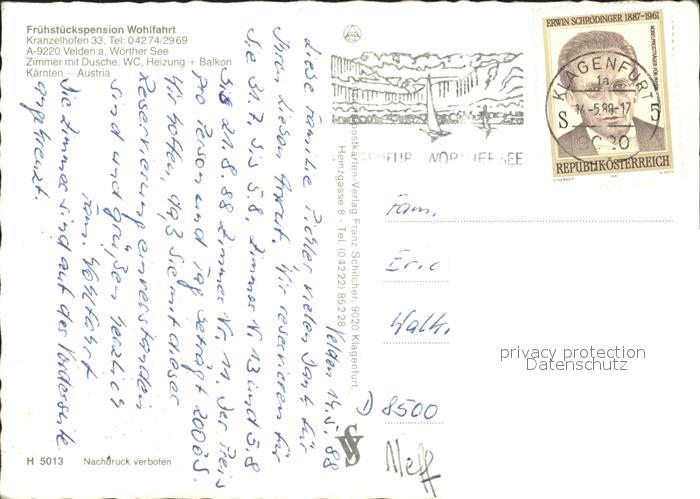 Frühstückspension Wohlfahrt
Kranzelhofen 33, Tel: 04274/2969
A-9220 Velden a. Wörther See
Zimmer mit Dusche, WC, Heizung + Balkon
Kärnten – Austria
Velden 14.5.88
Liebe Familie Pichler, vielen Dank für
Ihren lieben Anruf. Wir reservieren für
Sie 31.7. bis 5.8. Zimmer Nr 13 und 5.8
bis 21.8.88 Zimmer Nr. 11. Der Preis
pro Person und Tag beträgt 200 ÖS.
Wir hoffen, daß Sie mit dieser
Reservierung einverstanden
sind und grüßen herzlich
Fam. Wohlfahrt
Die Zimmer sind auf der Vorderseite
angekreuzt.
H 5013 Nachdruck verboten
Postkarten-Verlag Franz Schilcher, 9020 Klagenfurt,
Heinzgasse 8 · Tel. (04222) 85228
WÖRTHERSEE
ERWIN SCHRÖDINGER 1887-1961
NOBELPREISTRÄGER FÜR PHYSIK
S 5
REPUBLIK ÖSTERREICH
KLAGENFURT
1a
14.-5.88-17
9020
Fam.
Eric
Walk.
D 8500
privacy protection
Datenschutz